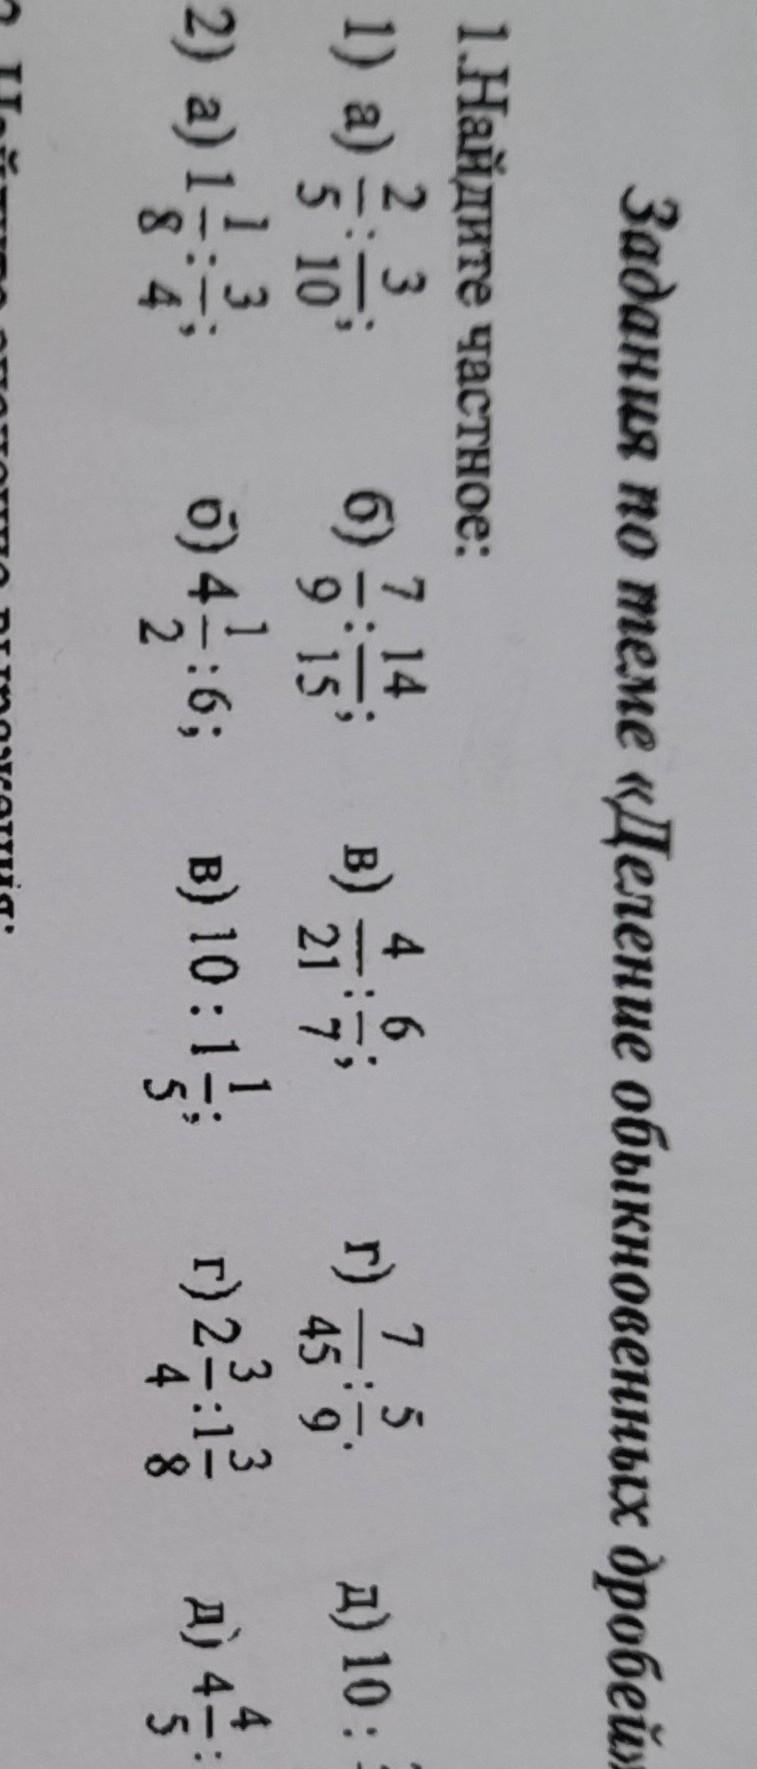 Задания по теме «Деление обыкновенных дробей»
1.Найдите частное:
1) а) 2/5 : 3/10; б) 7/9 : 14/15; в) 4/21 : 6/7; г) 7/45 : 5/9. д) 10 :
2) а) 1 1/8 : 3/4; б) 4 1/2 : 6; в) 10 : 1 1/5; г) 2 3/4 : 1 3/8 д) 4 4/5 :